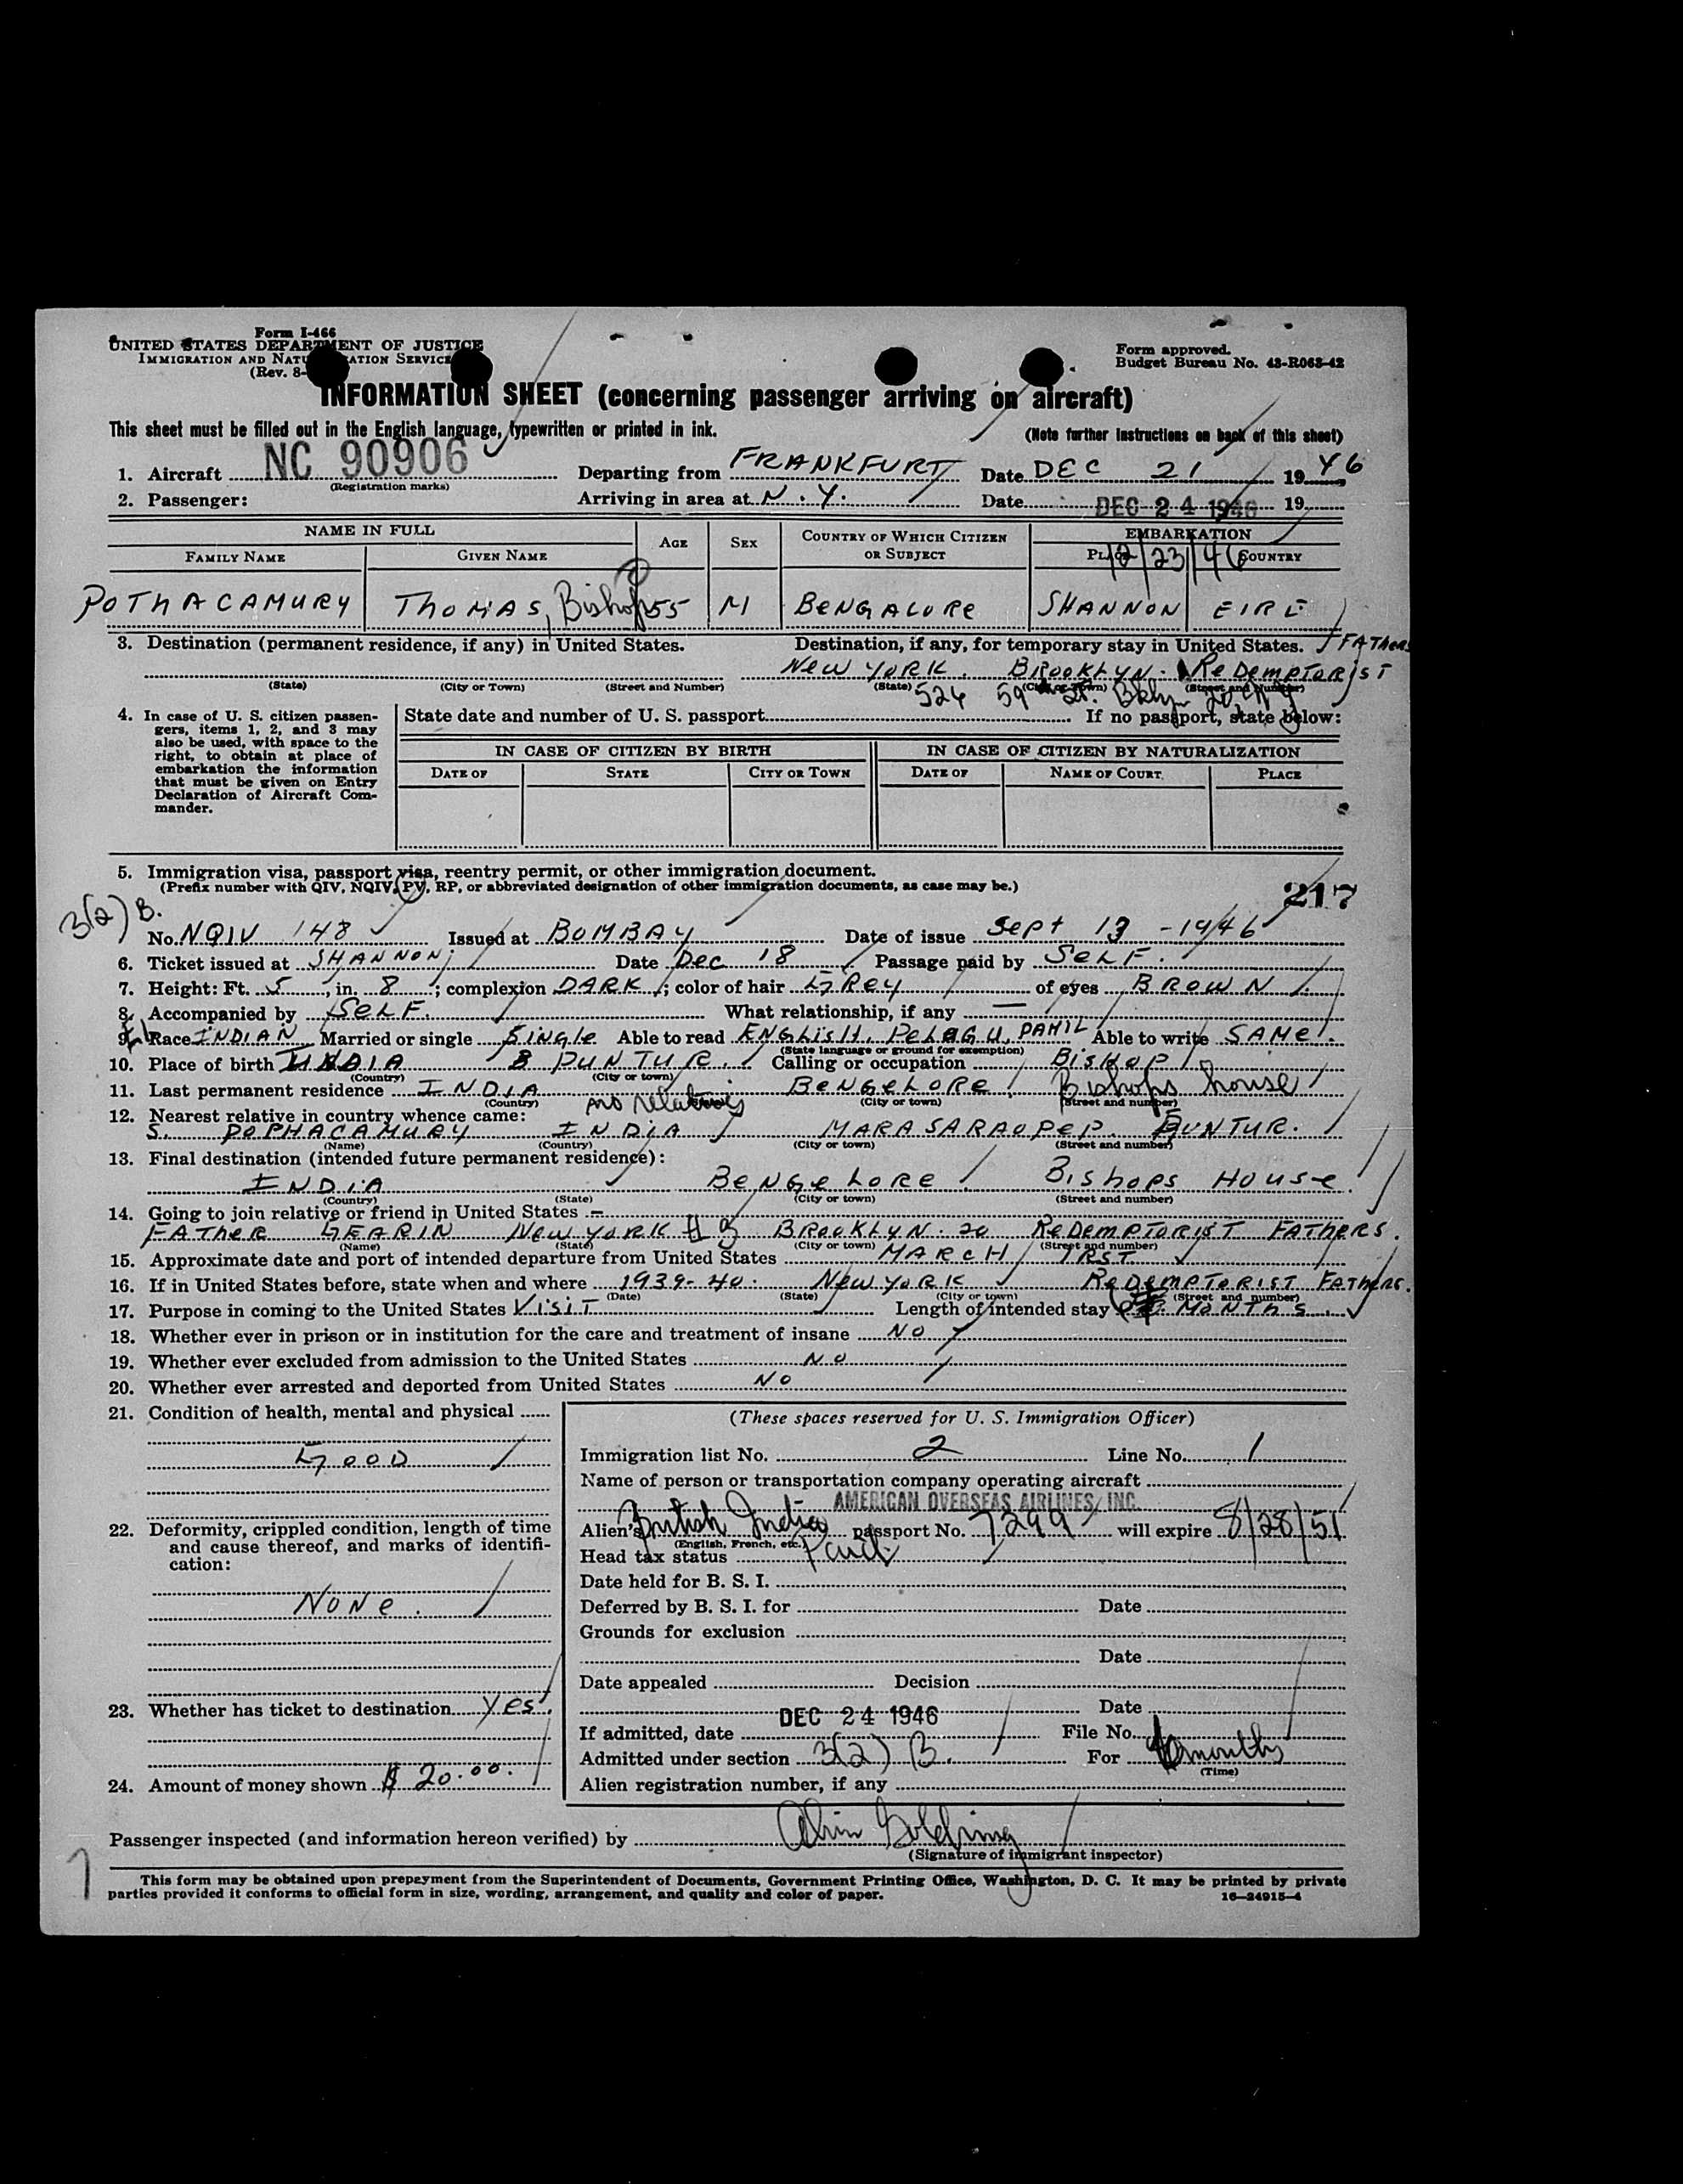 Form I-466
UNITED STATES DEPARTMENT OF JUSTICE
IMMIGRATION AND NATURALIZATION SERVICE
(Rev. 8-
Form approved.
Budget Bureau No. 43-R063-42
INFORMATION SHEET (concerning passenger arriving on aircraft)
This sheet must be filled out in the English language, typewritten or printed in ink.
(Note further instructions on back of this sheet)
1. Aircraft NC 90906 Departing from FRANKFURT Date DEC 21 1946
(Registration marks)
2. Passenger: Arriving in area at N.Y. Date DEC 24 1946 19
NAME IN FULL AGE SEX COUNTRY OF WHICH CITIZEN OR SUBJECT EMBARKATION
FAMILY NAME GIVEN NAME PLACE 12/23/46 COUNTRY
POTHACAMURY THOMAS, Bishop 55 M BENGALORE SHANNON EIRE
3. Destination (permanent residence, if any) in United States. Destination, if any, for temporary stay in United States. FATHERS
NEW YORK. BROOKLYN. REDEMPTORIST
(State) (City or Town) (Street and Number) (State) (City or Town) (Street and Number)
526 59 St. Bklyn 20 NY
4. In case of U. S. citizen passengers, items 1, 2, and 3 may also be used, with space to the right, to obtain at place of embarkation the information that must be given on Entry Declaration of Aircraft Commander.
State date and number of U. S. passport If no passport, state below:
IN CASE OF CITIZEN BY BIRTH IN CASE OF CITIZEN BY NATURALIZATION
DATE OF STATE CITY OR TOWN DATE OF NAME OF COURT PLACE
5. Immigration visa, passport visa, reentry permit, or other immigration document.
(Prefix number with QIV, NQIV, PV, RP, or abbreviated designation of other immigration documents, as case may be.)
217
3(2) B.
No. NQIV 148 Issued at BOMBAY Date of issue Sept 13 - 1946
6. Ticket issued at SHANNON Date Dec 18 Passage paid by SELF.
7. Height: Ft. 5, in. 8; complexion DARK; color of hair GREY of eyes BROWN
8. Accompanied by SELF. What relationship, if any —
9. Race INDIAN Married or single SINGLE Able to read ENGLISH, PELAGU, PAMIL Able to write SAME.
(State language or ground for exemption)
10. Place of birth INDIA PUNTUR. Calling or occupation BISHOP
(Country) (City or town)
11. Last permanent residence INDIA BENGELORE Bishops house
(Country) (City or town) (Street and number)
no relatives
12. Nearest relative in country whence came:
S. POPHACAMURY INDIA MARASARAOPEP. GUNTUR.
(Name) (Country) (City or town) (Street and number)
13. Final destination (intended future permanent residence):
INDIA BENGELORE Bishops House
(Country) (State) (City or town) (Street and number)
14. Going to join relative or friend in United States —
FATHER GEARIN NEW YORK BROOKLYN. 20 REDEMPTORIST FATHERS.
(Name) (State) (City or town) (Street and number)
15. Approximate date and port of intended departure from United States MARCH 1RST
16. If in United States before, state when and where 1939-40. NEW YORK REDEMPTORIST FATHERS.
(Date) (State) (City or town) (Street and number)
17. Purpose in coming to the United States VISIT Length of intended stay MONTHS.
18. Whether ever in prison or in institution for the care and treatment of insane NO
19. Whether ever excluded from admission to the United States NO
20. Whether ever arrested and deported from United States NO
21. Condition of health, mental and physical
GOOD
22. Deformity, crippled condition, length of time and cause thereof, and marks of identification:
NONE.
23. Whether has ticket to destination Yes.
24. Amount of money shown $ 20.00.
(These spaces reserved for U. S. Immigration Officer)
Immigration list No. 2 Line No. 1
Name of person or transportation company operating aircraft
AMERICAN OVERSEAS AIRLINES, INC.
Alien's British India passport No. 7299 will expire 8/28/51
(English, French, etc.)
Head tax status Paid
Date held for B. S. I.
Deferred by B. S. I. for Date
Grounds for exclusion
Date
Date appealed Decision
Date
If admitted, date DEC 24 1946 File No.
Admitted under section 3(2) B. For months
(Time)
Alien registration number, if any
Passenger inspected (and information hereon verified) by
(Signature of immigrant inspector)
This form may be obtained upon prepayment from the Superintendent of Documents, Government Printing Office, Washington, D. C. It may be printed by private
parties provided it conforms to official form in size, wording, arrangement, and quality and color of paper.
16—24915-4